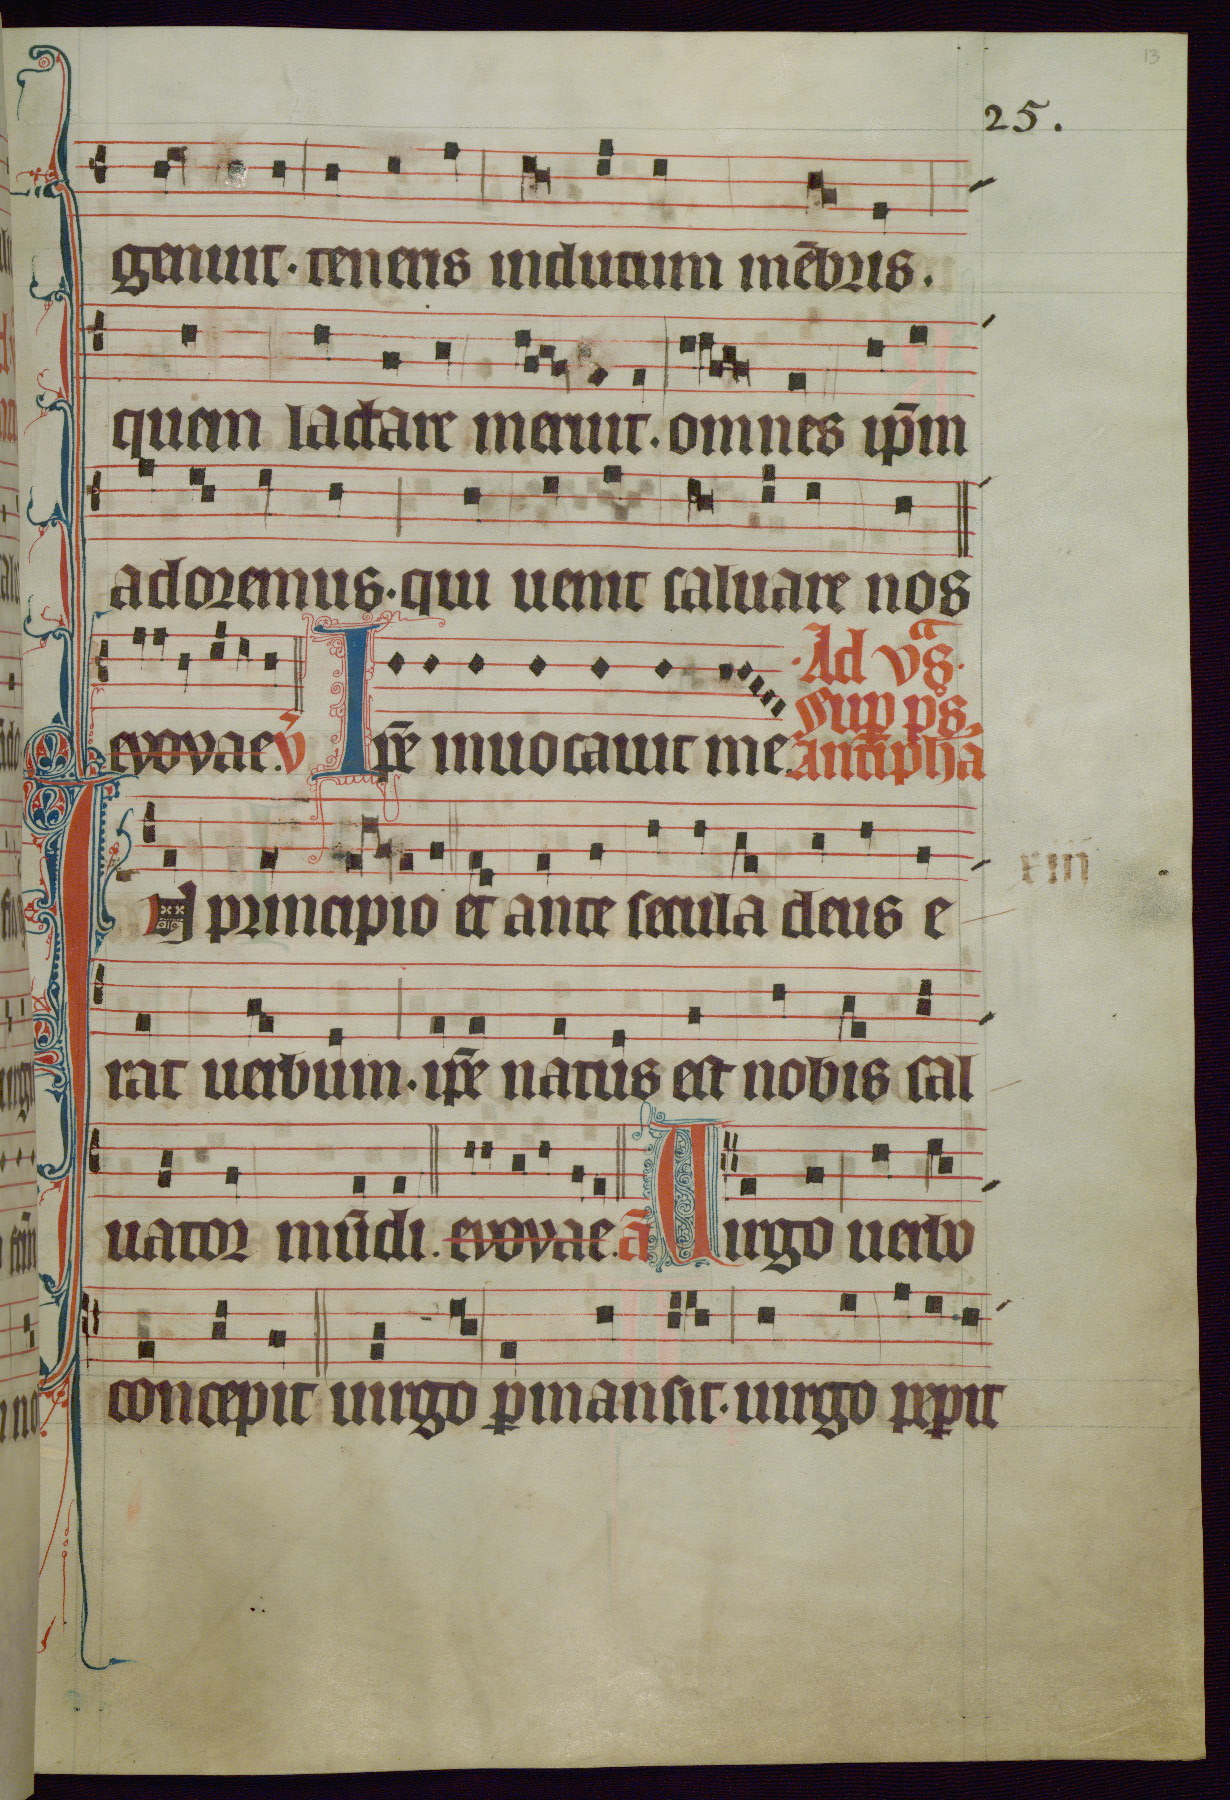 13
25.
genuit. teneris indutum mēbris.
quem lactare meruit. omnes ip̄m
adoremus. qui uenit saluare nos
evovae. v̄ Ip̄e inuocauit me. Ad vᵃs.
Sup ps.
Antipha
In principio et ante secula deus e
xiiij
rat uerbum. ip̄e natus est nobis sal
uator mūdi. evovae. ā Uirgo uerbo
concepit uirgo ꝑmansit. uirgo peꝑit